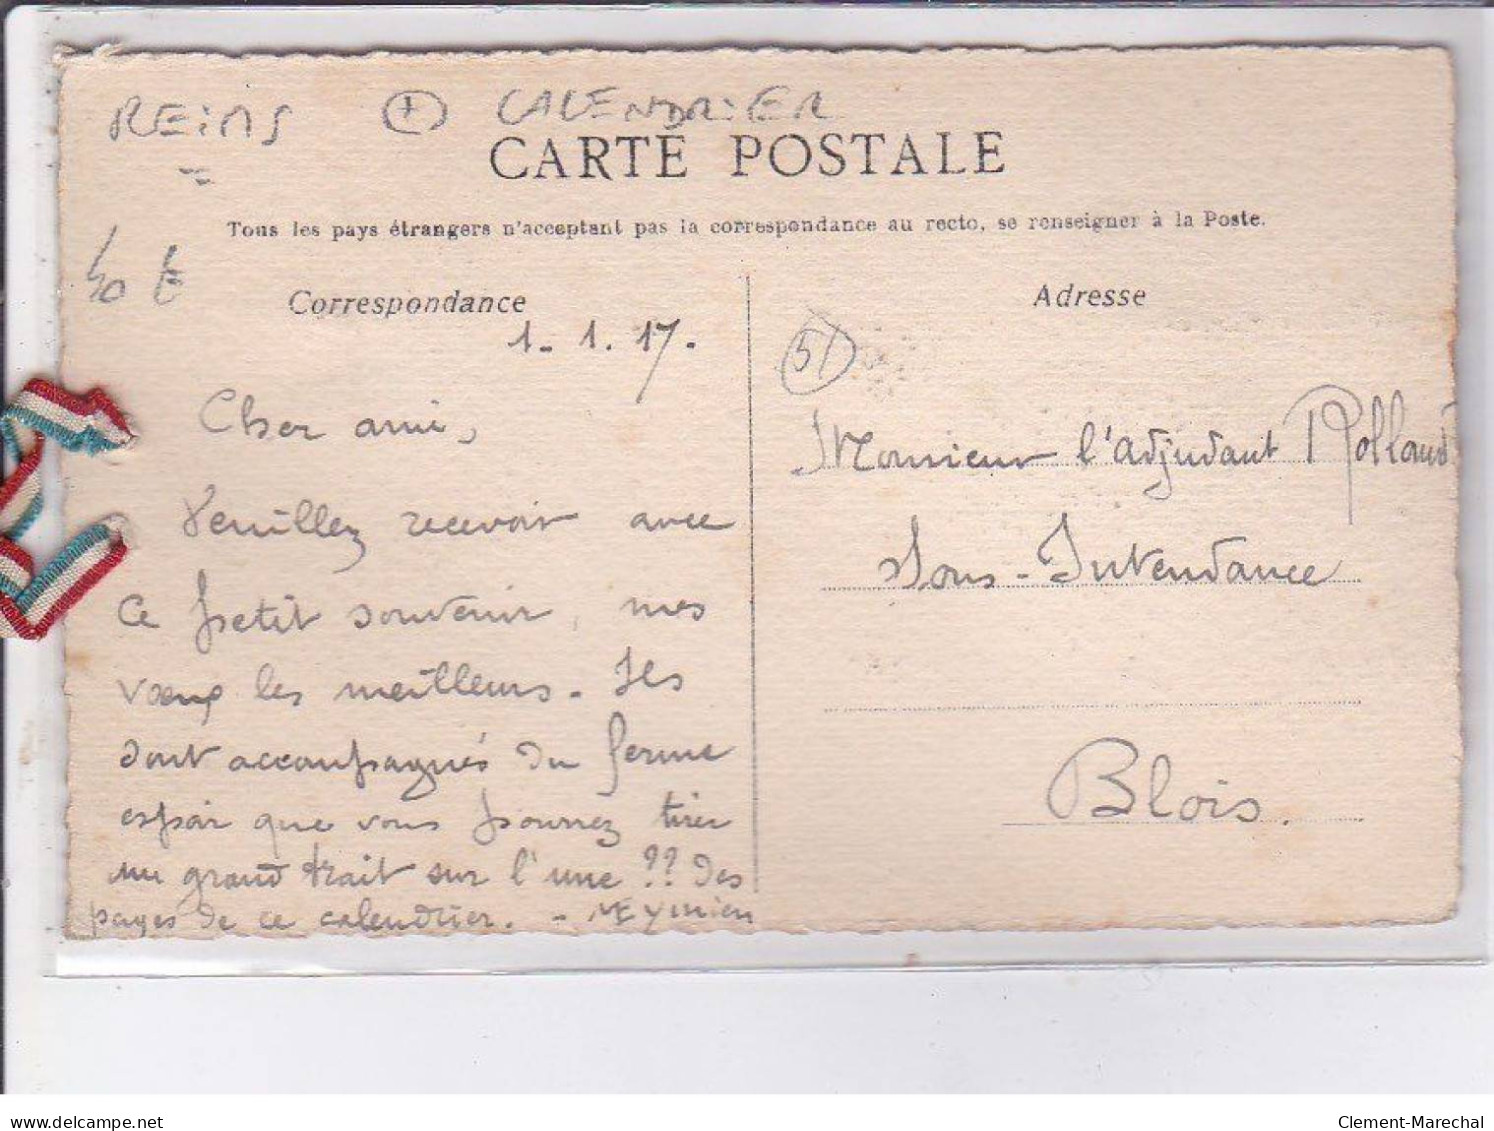 REiMS + CALENDRiER
CARTE POSTALE
Tous les pays étrangers n'acceptent pas la correspondance au recto, se renseigner à la Poste.
40 E
Correspondance
Adresse
1. 1. 17.
51
Cher ami,
Veuillez recevoir avec
ce petit souvenir, mes
vœux les meilleurs. Ils
sont accompagnés du ferme
espoir que vous pourrez tirer
un grand trait sur l'une ?? des
pages de ce calendrier. -
Monsieur l'adjudant Rolland
Sous-Intendance
Blois.
delcampe.net
Clement-Marechal